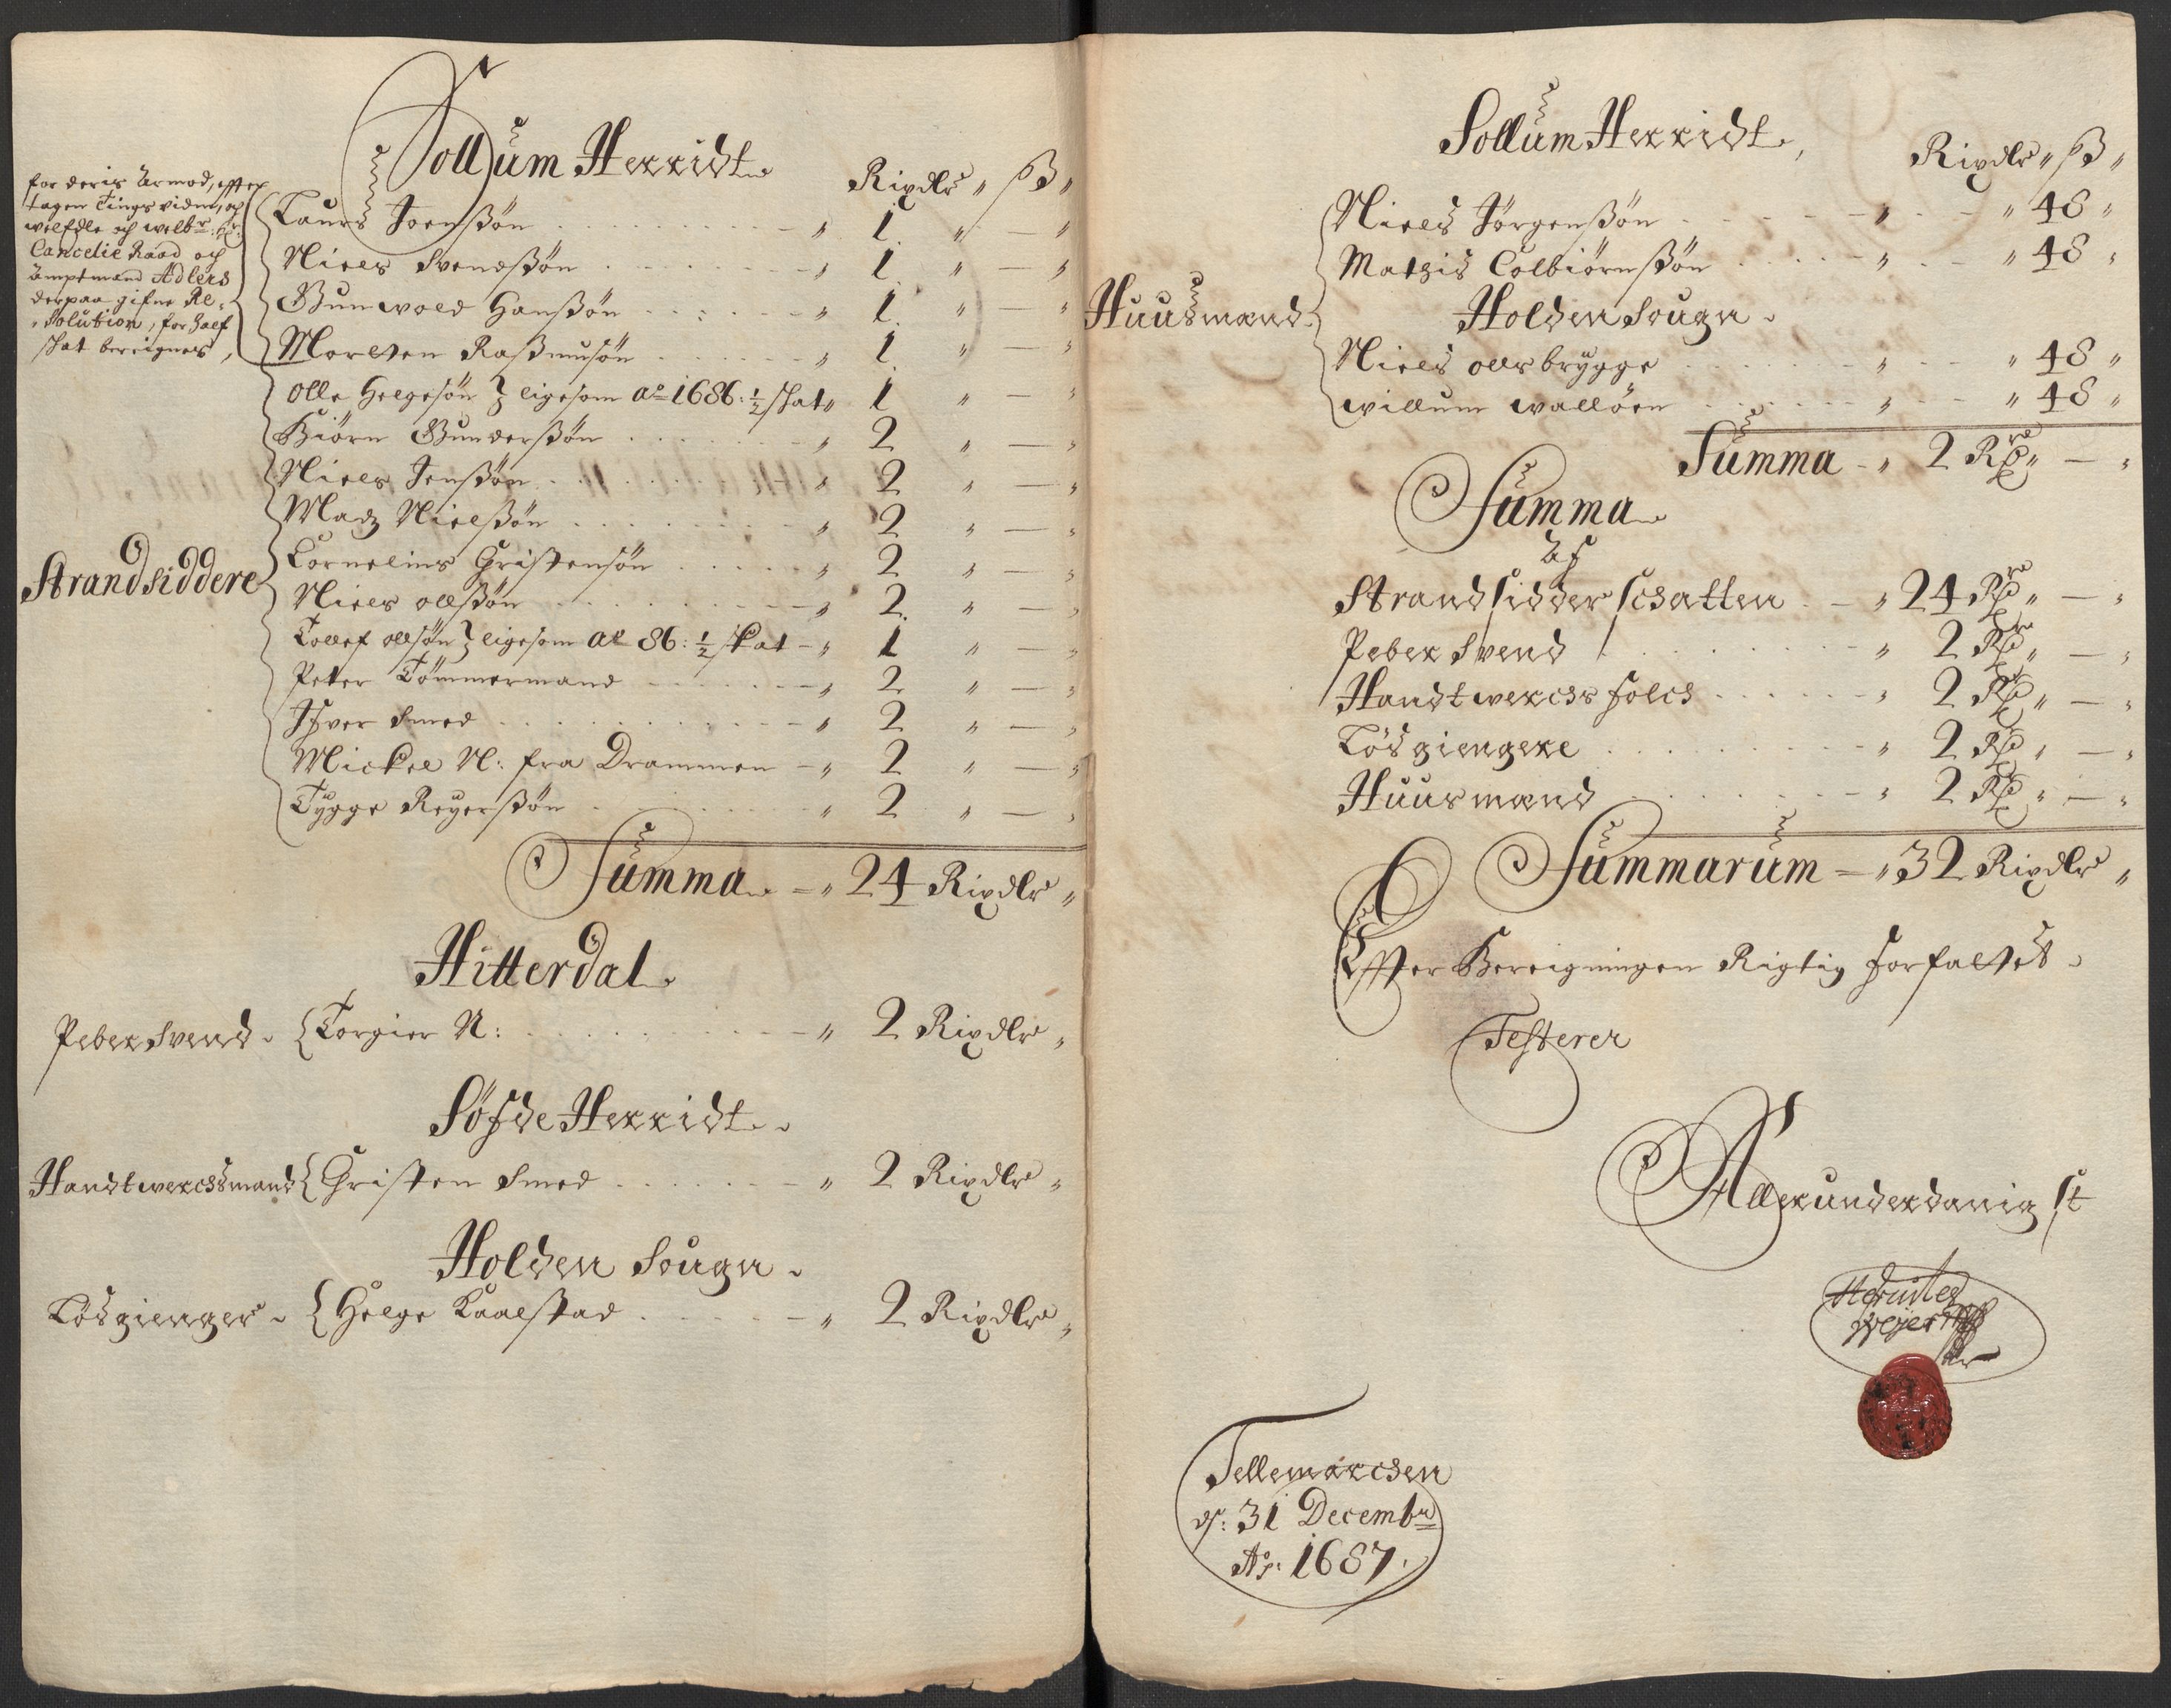 Sollum Herridt
Rixdlr ß
for deris Armod, effter
tagen Tingsvidne, och
welEdle och welbr: Hr:
Cancelie Raad och
Amptmand Adlers
derpaa gifne Re-
solution, for half
skat bereignes,
Laurs Joenßøn 1
Niels Svendßøn 1
Gunwold Hanßøn 1
Morten Raßmusøn 1
Olle Helgesøn ligesom Ao 1686: ½ skat 1
Biørn Gunderßøn 2
Niels Jenßøn 2
Madz Nielßøn 2
Strandsiddere
Cornelius Christensøn 2
Niels Olleßøn 2
Tollef Olsøn ligesom Ao 86: ½ skat 1
Peter Tømmermand 2
Ifver Smed 2
Mickel N: fra Drammen 2
Tygge Reyerßøn 2
Summa 24 Rixdlr
Hitterdal
Peber Svend Torgier N: 2 Rixdlr
Søfde Herridt
Handtwercksmand Christen Smed 2 Rixdlr
Holden Sougn
Løsgienger Helge Kaalstad 2 Rixdlr
Sollum Herridt,
Rixdlr ß
Niels Jørgenßøn 48
Matzis Colbiørnßøn 48
Huusmænd
Holden Sougn
Niels Olles brygge 48
Willum Walløen 48
Summa 2 Rdr
Summa
Af
Strandsidder schatten 24 Rdr
Peber Svend 2 Rdr
Handtwercks folck 2 Rdr
Løsgiengere 2 Rdr
Huusmænd 2 Rdr
Summarum 32 Rixdlr
Effter Bereigningen Rigtig forfattet
Testerer
Allerunderdanigst
Tellemarcken
dj: 31 Decembr
Ao: 1687.